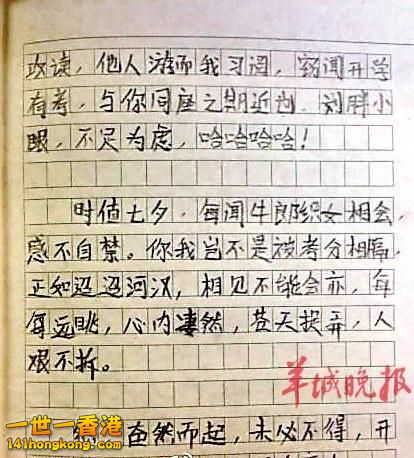 攻读，他人游而我习，窃闻开学
有考，与你同座之期近，刘胖小
眼，不足为虑，哈哈哈哈！
时值七夕，每闻牛郎织女相会，
感不自禁。你我岂不是被考分相隔，
正如迢迢河汉，相见不能会亦，每
每远眺，心内凄然，苍天捉弄，人
艰不拆。
羊城晚报
奋然而起，未必不得，开
一世一香港
141hongkong.com